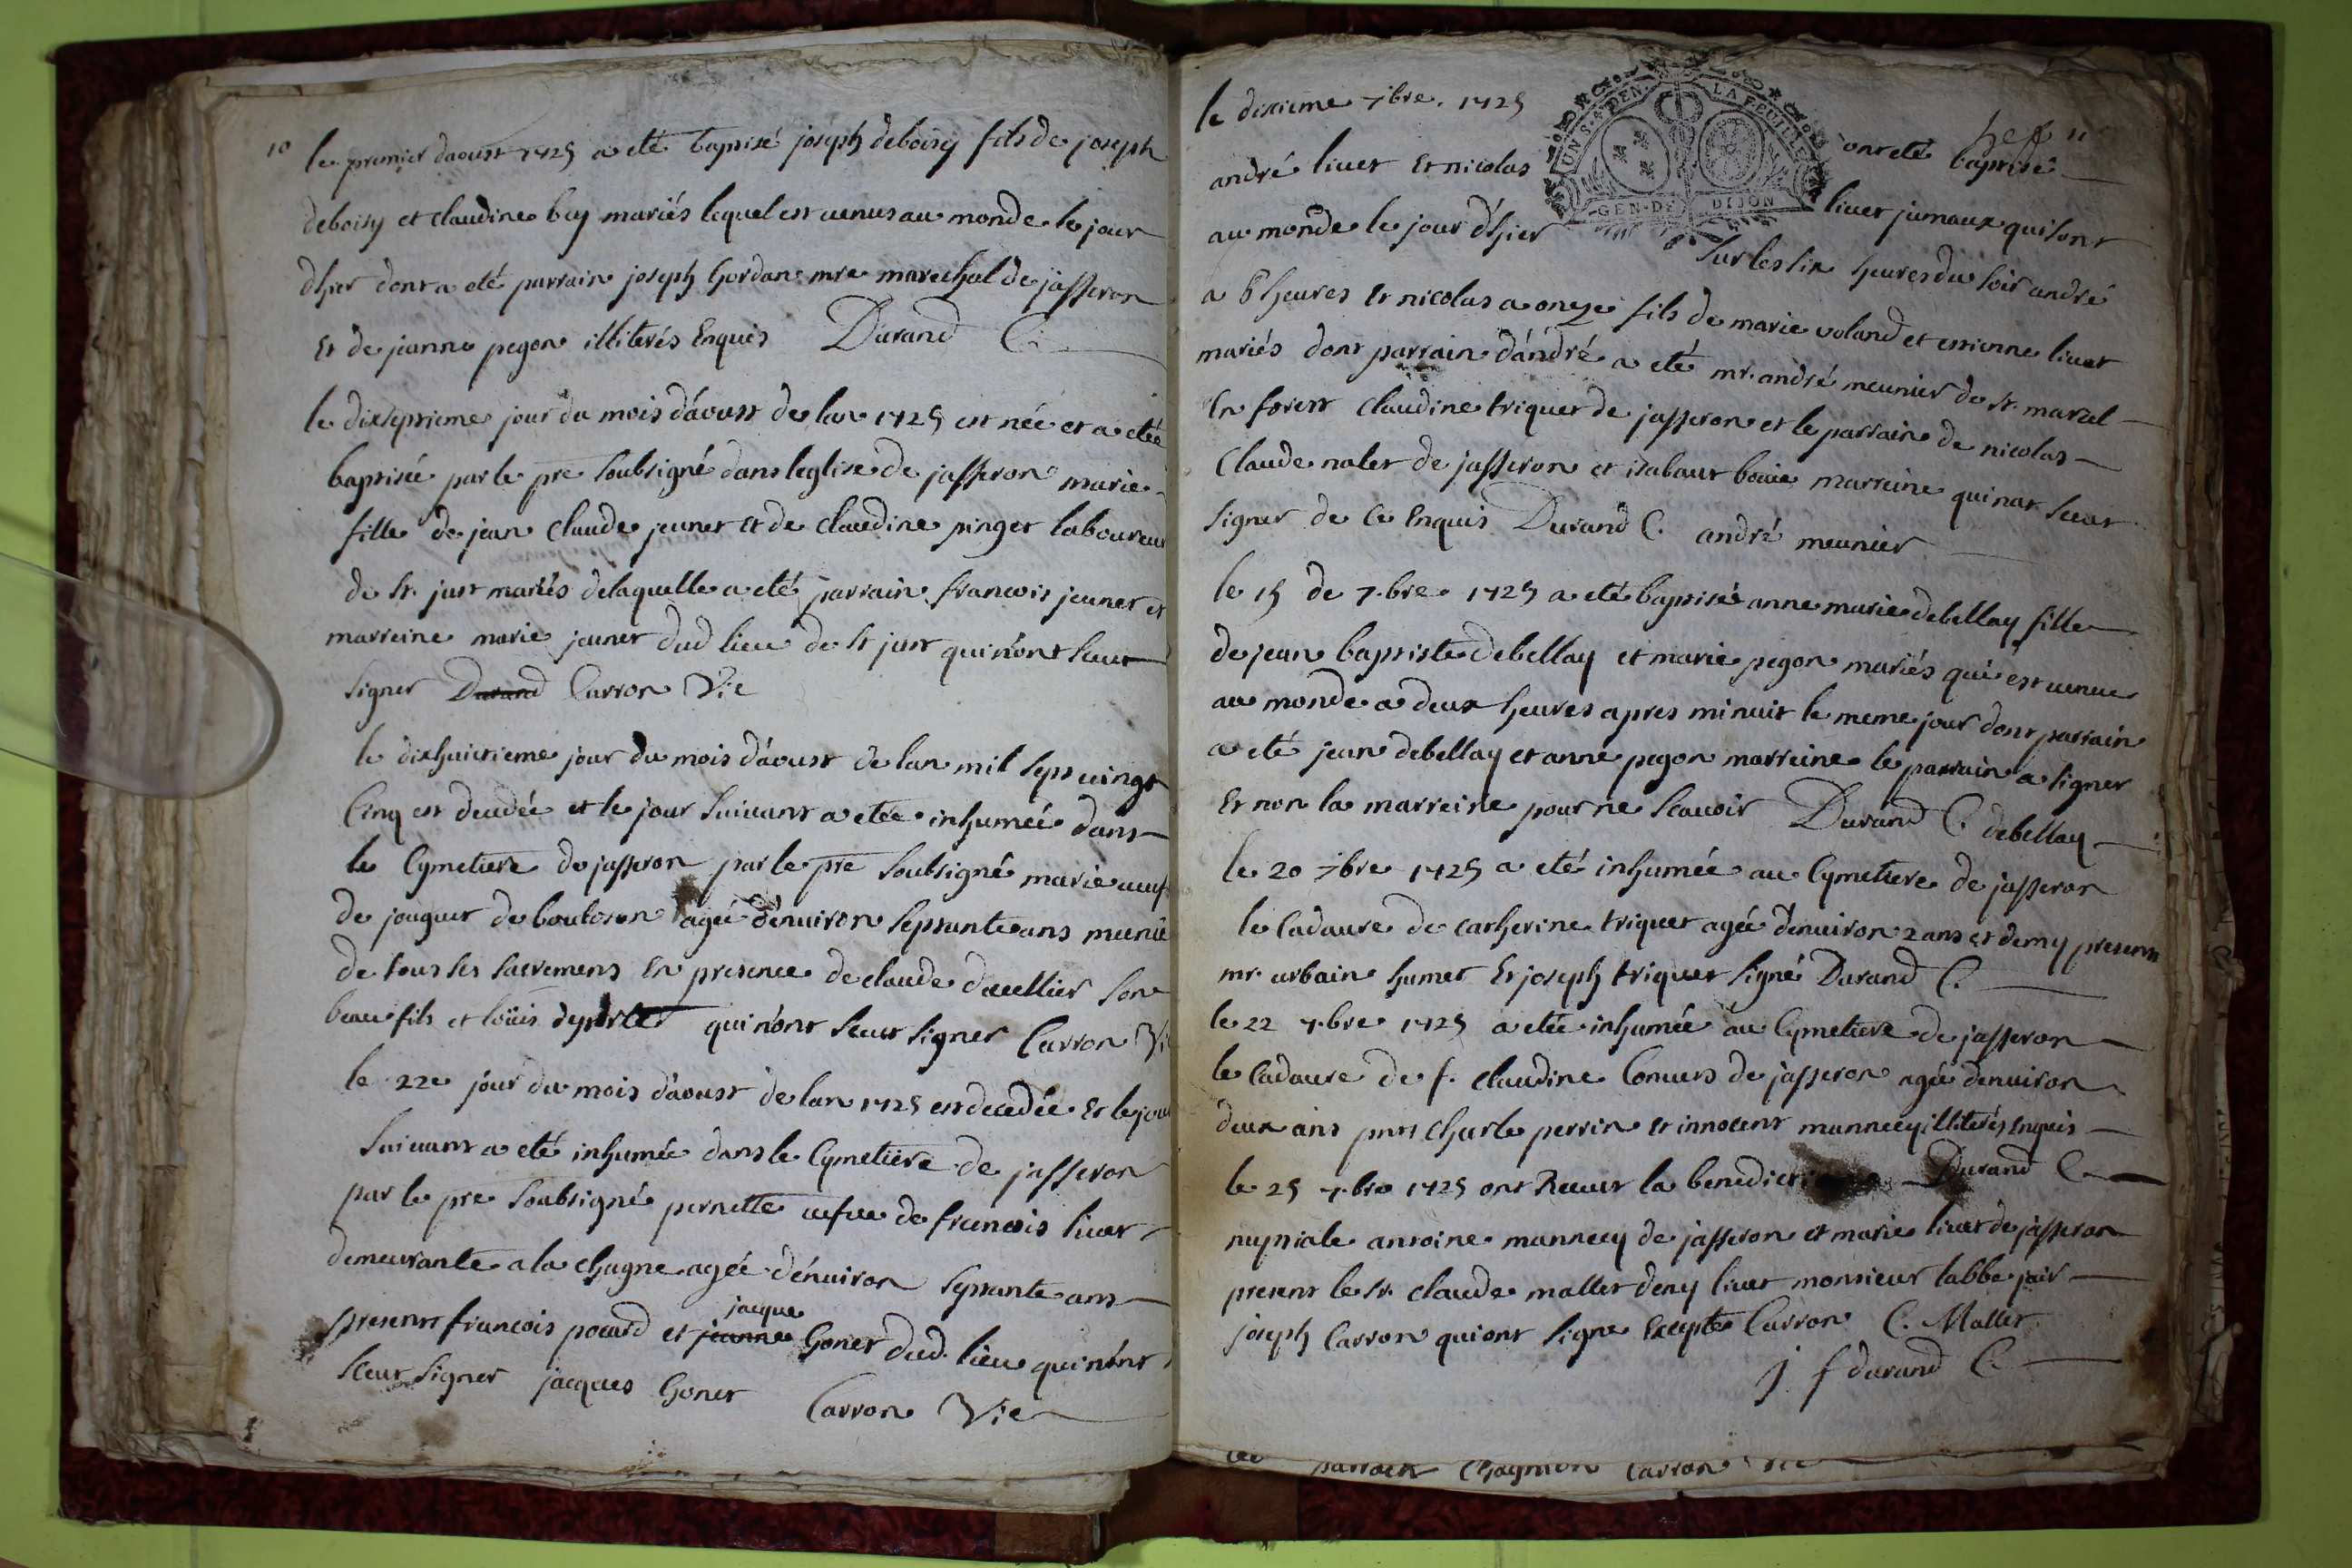 10
le premier daoust 1725 a eté baptisé joseph deboisy fils de joseph
deboisy et claudine bey mariés lequel est uenus au monde le jour
dhier dont a eté parrain joseph Gordan mre marechal de jasseron
Et de jeanne pegon illiterés Enquis Durand C.
le dixseptieme jour du mois d'aoust de lan 1725 est née et a etée
baptisée par le pre soubsigné dans leglise de jasseron marie
fille de jean claude jeunet et de claudine pinget laboureur
de st. just mariés delaquelle a eté parrain francois jeunet et
marreine marie jeunet dud lieu de st just qui n'ont sceut
signer Durand Carron Vic
le dixhuictieme jour du mois d'aoust de lan mil sept uingt
Cinq est decedée et le jour suiuant a etée inhumée dans
le Cymetiere de jasseron par le pre soubsigné marie ueuf
de jouquet de boutoson agée d'enuiron septante ans munie
de tous ses sacremens En presence de claude dauellier son
beau fils et loüis qui n'ont sceut signer Carron Vi
le 22e jour du mois d'aoust de lan 1725 est decedée Et le jour
suiuant a eté inhumée dans le Cymetiere de jasseron
par le pre soubsigné pernette uefue de francois liuet
demeurante a la chagne agée d'enuiron septante ans
jacque
presents francois pocard et jeanne Gonet dud. lieu qui n'ont
sceut signer jacques Gonet Carron Vic
le dixieme 7bre. 1725
UN S. 4 DEN. LA FEUILLE
GEN. DE DIJON
11
ont eté baptisé
andré liuet Et nicolas liuet jumaux qui sont
au monde le jour d'hier sur les six heures du soir andré
a 6 heures Et nicolas a onze fils de marie uoland et estienne liuet
mariés dont parrain d'andré a eté mr. andré meunier de st. marcel
En forest claudine triquet de jasseron et le parrain de nicolas
Claude nalet de jasseron et isabaut bouie marreine qui nat sceut
signer de Ce Enquis Durand C. andré meunier
le 15 de 7.bre 1725 a eté baptisée anne marie debellay fille
de jean baptiste debellay et marie pegon mariés qui est uenue
au monde a deux heures apres minuit le meme jour dont parrain
a eté jean debellay et anne pegon marreine le parrain a signer
Et non la marreine pour ne scauoir Durand C. debellay
le 20 7bre 1725 a eté inhumée au Cymetiere de jasseron
le Cadaure de catherine triquet agée d'enuiron 2 ans et demy presents
mr. urbain humet Et joseph triquet signé Durand C.
le 22 7.bre 1725 a etée inhumée au Cymetiere de jasseron
le Cadaure de f. claudine Conuers de jasseron agée denuiron
deux ans pnts charle perrin Et innocent mannecy illiterés enquis
le 25 7.bre 1725 ont Receut la benedict Durand C.
nuptiale antoine mannecy de jasseron et marie liuet de jasseron
present le sr. claude mallet deny liuet monsieur labbe
joseph Carron qui ont signe Excepte Carron C. Mallet
j. f durand C.
parrain Carron Vic